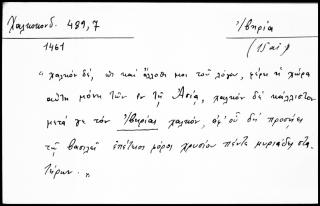 Χαλκοκονδ. 489,7 Ἰβηρία
1461 (15 αἰ.)
"χαλκὸν δέ, ὡς καὶ ἄλλοσί μοι τοῦ λόγου, φέρει ἡ χώρα
αὕτη μόνη τῶν ἐν τῇ Ἀσίᾳ, χαλκὸν δὲ κάλλιστον
μετά γε τὸν Ἰβηρίας χαλκόν, ἀφ' οὗ δὴ προσῄει
τῷ βασιλεῖ ἐπέτειος φόρος χρυσίου πέντε μυριάδες στα-
τήρων."